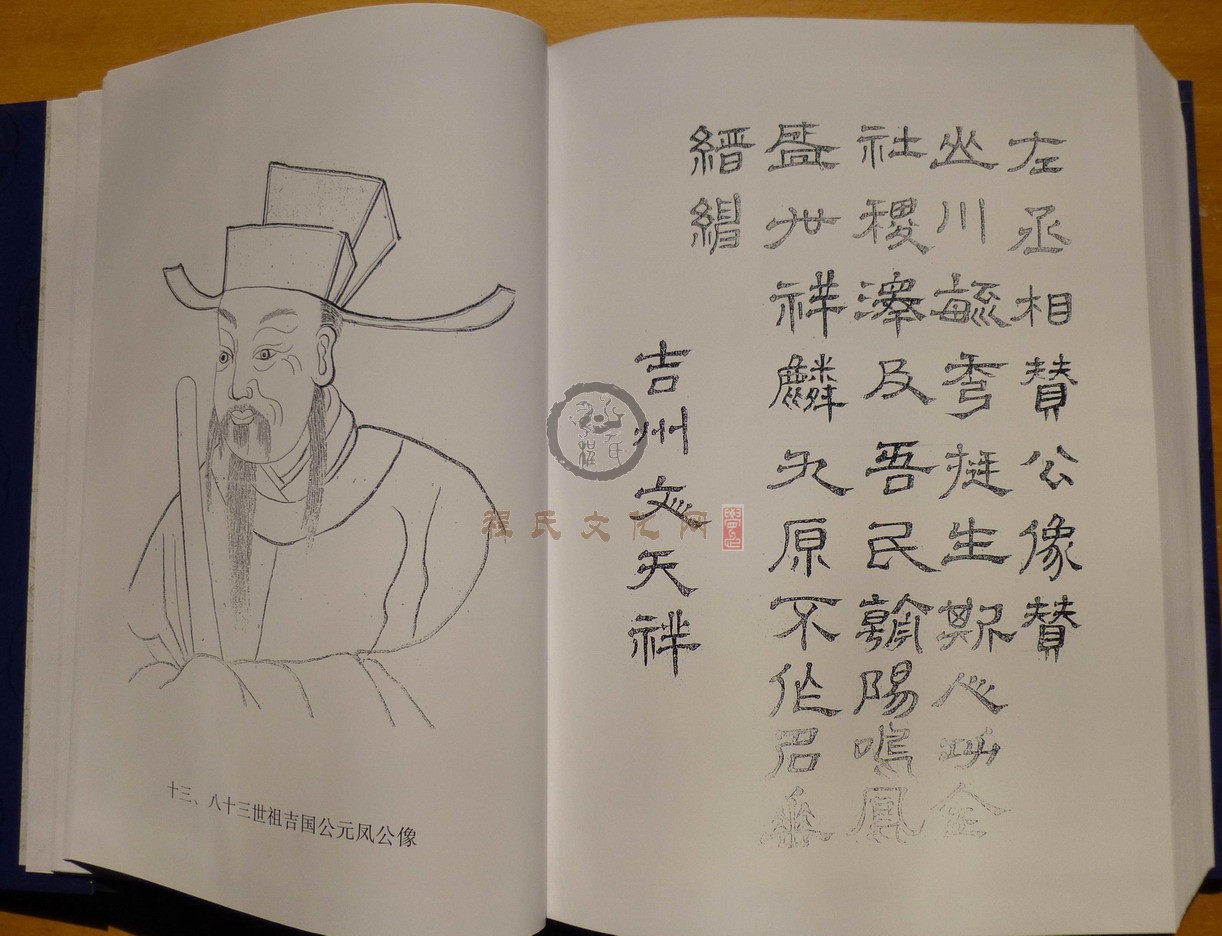 十三、八十三世祖吉国公元凤公像
左丞相賛公像賛
山川毓秀挺生斯人功全
社稷澤及吾民朝陽鳴鳳
盛世祥麟九原不作名垂
縉紳
吉州文天祥
程氏文化网